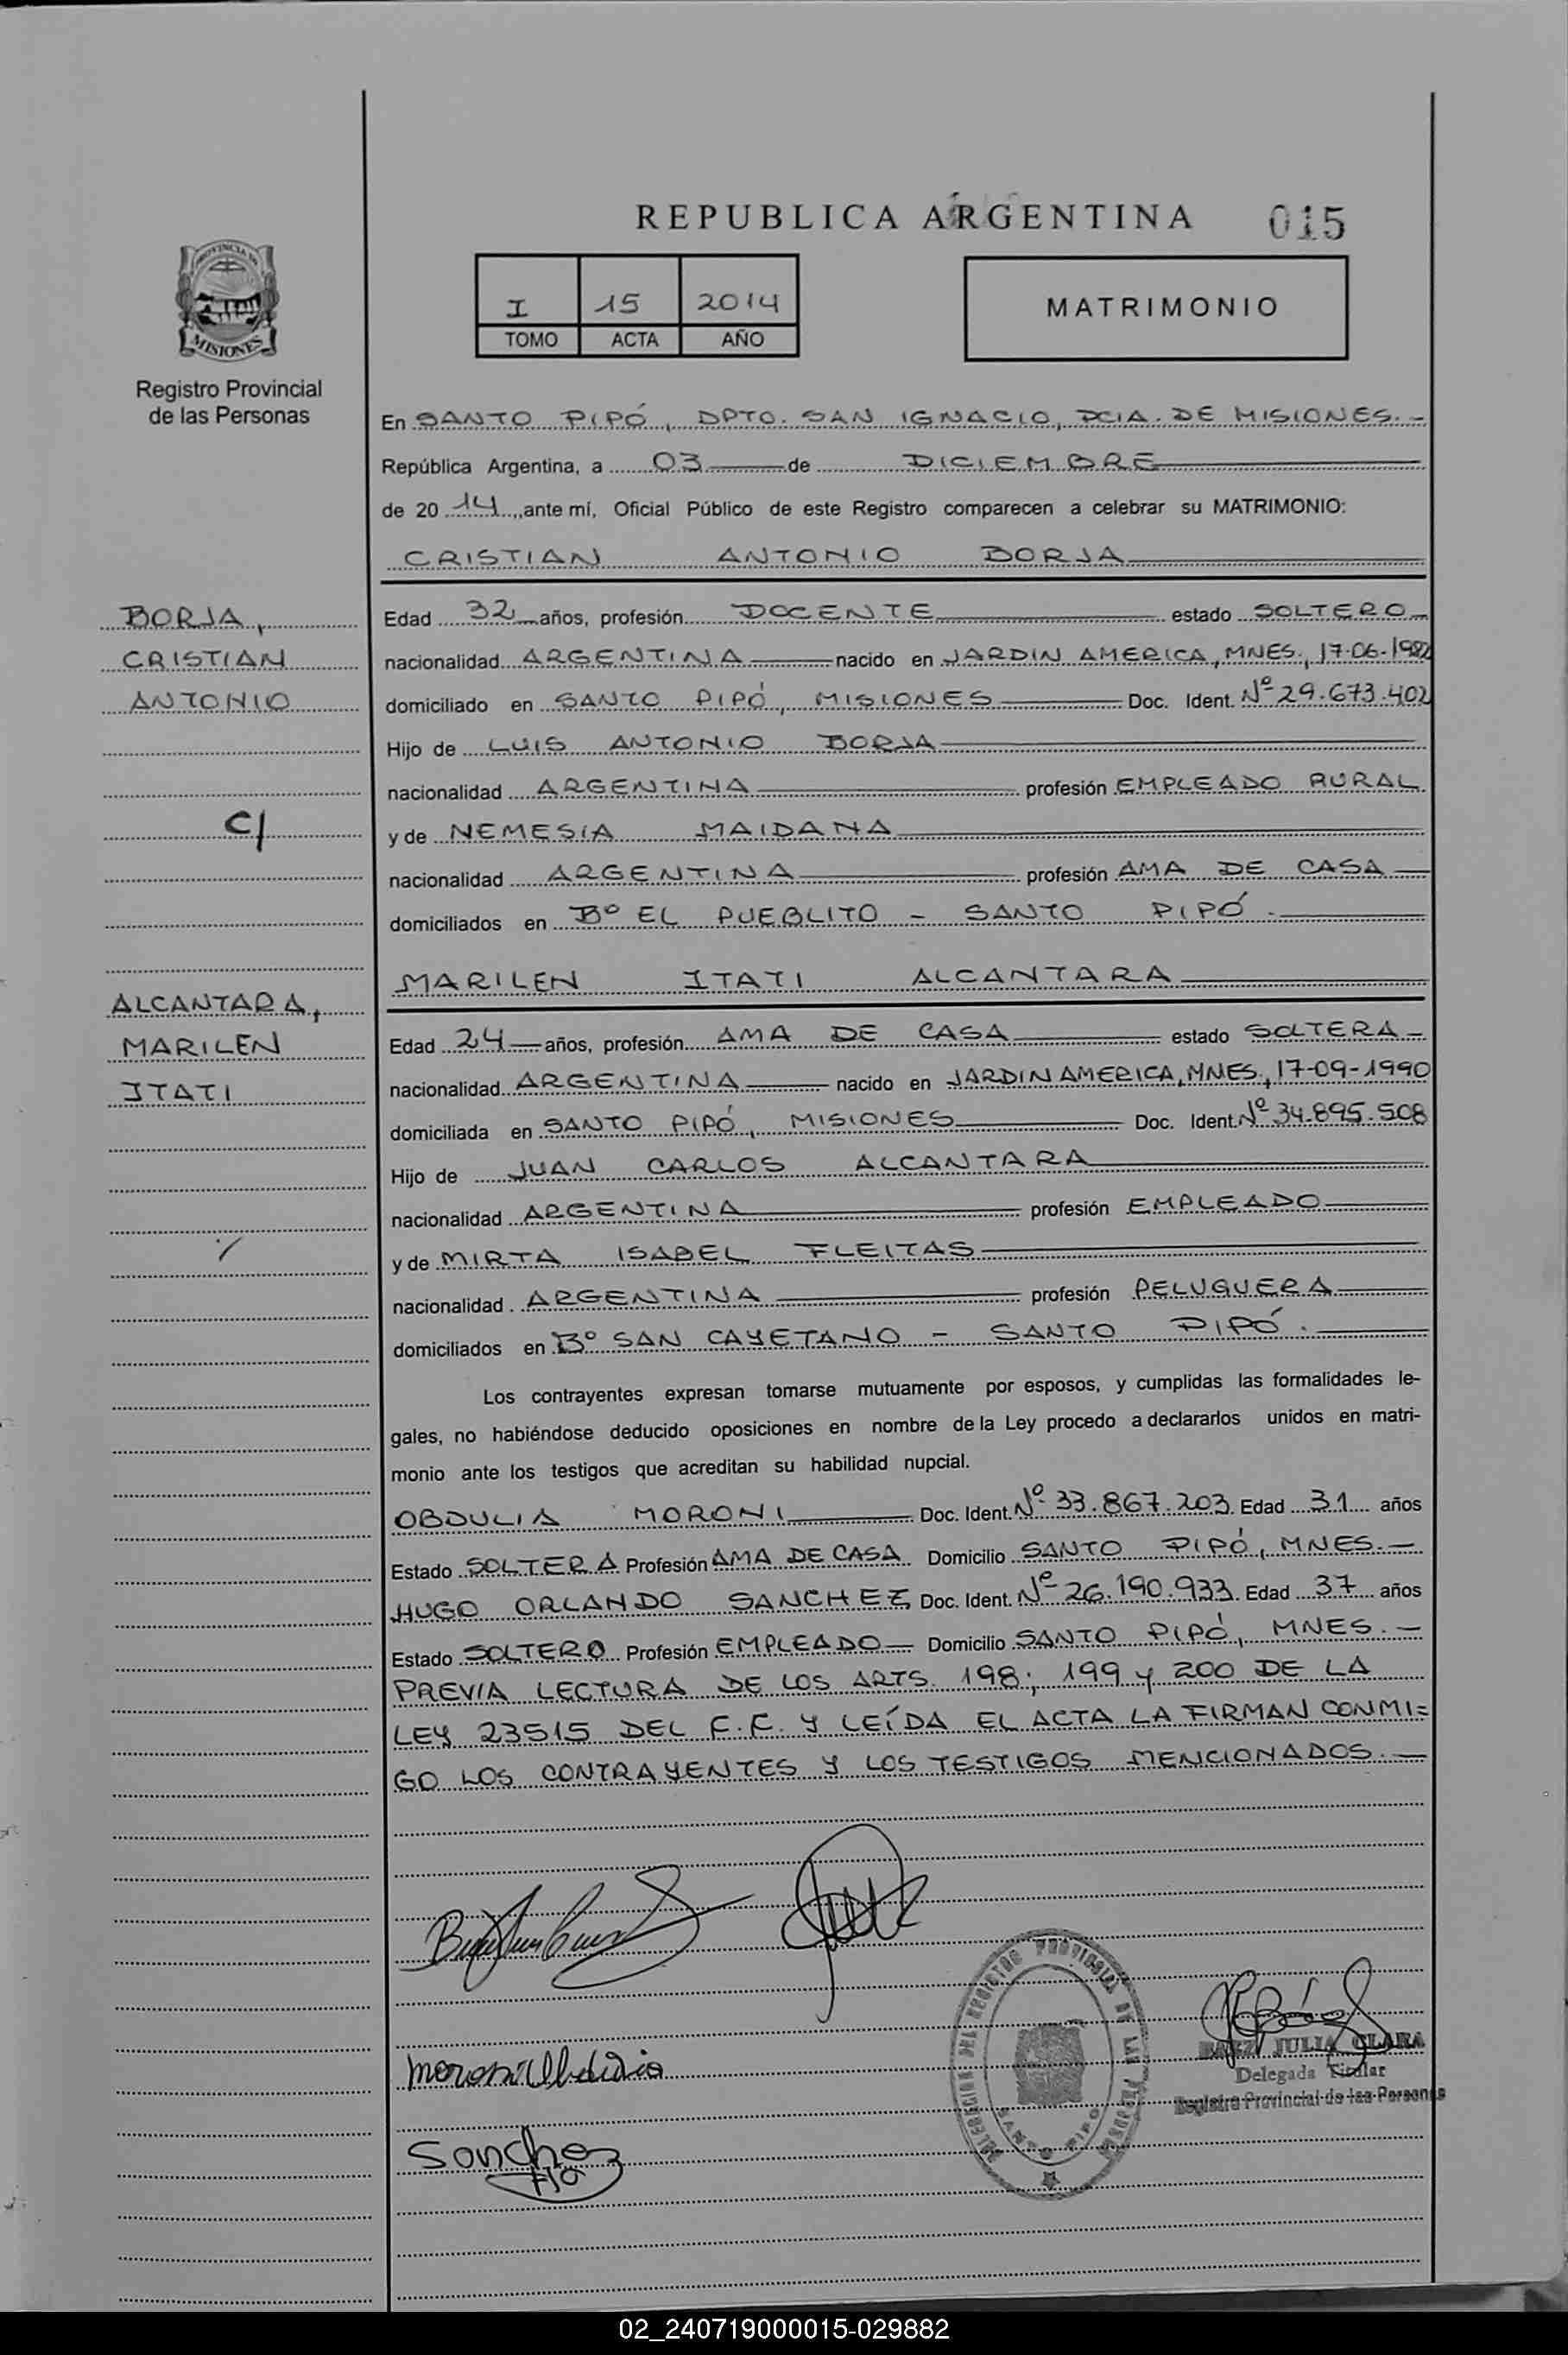 REPUBLICA ARGENTINA 015
PROVINCIA DE
MISIONES
Registro Provincial
de las Personas
I 15 2014
TOMO ACTA AÑO
MATRIMONIO
En SANTO PIPÓ, DPTO. SAN IGNACIO, PCIA. DE MISIONES.-
República Argentina, a 03 de DICIEMBRE
de 20 14, ante mí, Oficial Público de este Registro comparecen a celebrar su MATRIMONIO:
CRISTIAN ANTONIO BORJA
BORJA,
CRISTIAN
ANTONIO
C/
ALCANTARA,
MARILEN
ITATI
Edad 32 años, profesión DOCENTE estado SOLTERO
nacionalidad ARGENTINA nacido en JARDIN AMERICA, MNES., 17-06-1982
domiciliado en SANTO PIPÓ, MISIONES Doc. Ident. Nº 29.673.402
Hijo de LUIS ANTONIO BORJA
nacionalidad ARGENTINA profesión EMPLEADO RURAL
y de NEMESIA MAIDANA
nacionalidad ARGENTINA profesión AMA DE CASA
domiciliados en Bº EL PUEBLITO - SANTO PIPÓ.
MARILEN ITATI ALCANTARA
Edad 24 años, profesión AMA DE CASA estado SOLTERA
nacionalidad ARGENTINA nacido en JARDIN AMERICA, MNES., 17-09-1990
domiciliada en SANTO PIPÓ, MISIONES Doc. Ident. Nº 34.895.508
Hijo de JUAN CARLOS ALCANTARA
nacionalidad ARGENTINA profesión EMPLEADO
y de MIRTA ISABEL FLEITAS
nacionalidad ARGENTINA profesión PELUQUERA
domiciliados en Bº SAN CAYETANO - SANTO PIPÓ.
Los contrayentes expresan tomarse mutuamente por esposos, y cumplidas las formalidades le-
gales, no habiéndose deducido oposiciones en nombre de la Ley procedo a declararlos unidos en matri-
monio ante los testigos que acreditan su habilidad nupcial.
OBDULIA MORONI Doc. Ident. Nº 33.867.203 Edad 31 años
Estado SOLTERA Profesión AMA DE CASA Domicilio SANTO PIPÓ, MNES.-
HUGO ORLANDO SANCHEZ Doc. Ident. Nº 26.190.933 Edad 37 años
Estado SOLTERO Profesión EMPLEADO Domicilio SANTO PIPÓ, MNES.-
PREVIA LECTURA DE LOS ARTS. 198; 199 y 200 DE LA
LEY 23515 DEL C.C. Y LEÍDA EL ACTA LA FIRMAN CONMI=
GO LOS CONTRAYENTES Y LOS TESTIGOS MENCIONADOS.-
DELEGACION DEL REGISTRO PROVINCIAL DE LAS PERSONAS
SANTO PIPO
BAEZ JULIA CLARA
Delegada Titular
Registro Provincial de las Personas
Moroni Obdulia
Sanchez
02_240719000015-029882